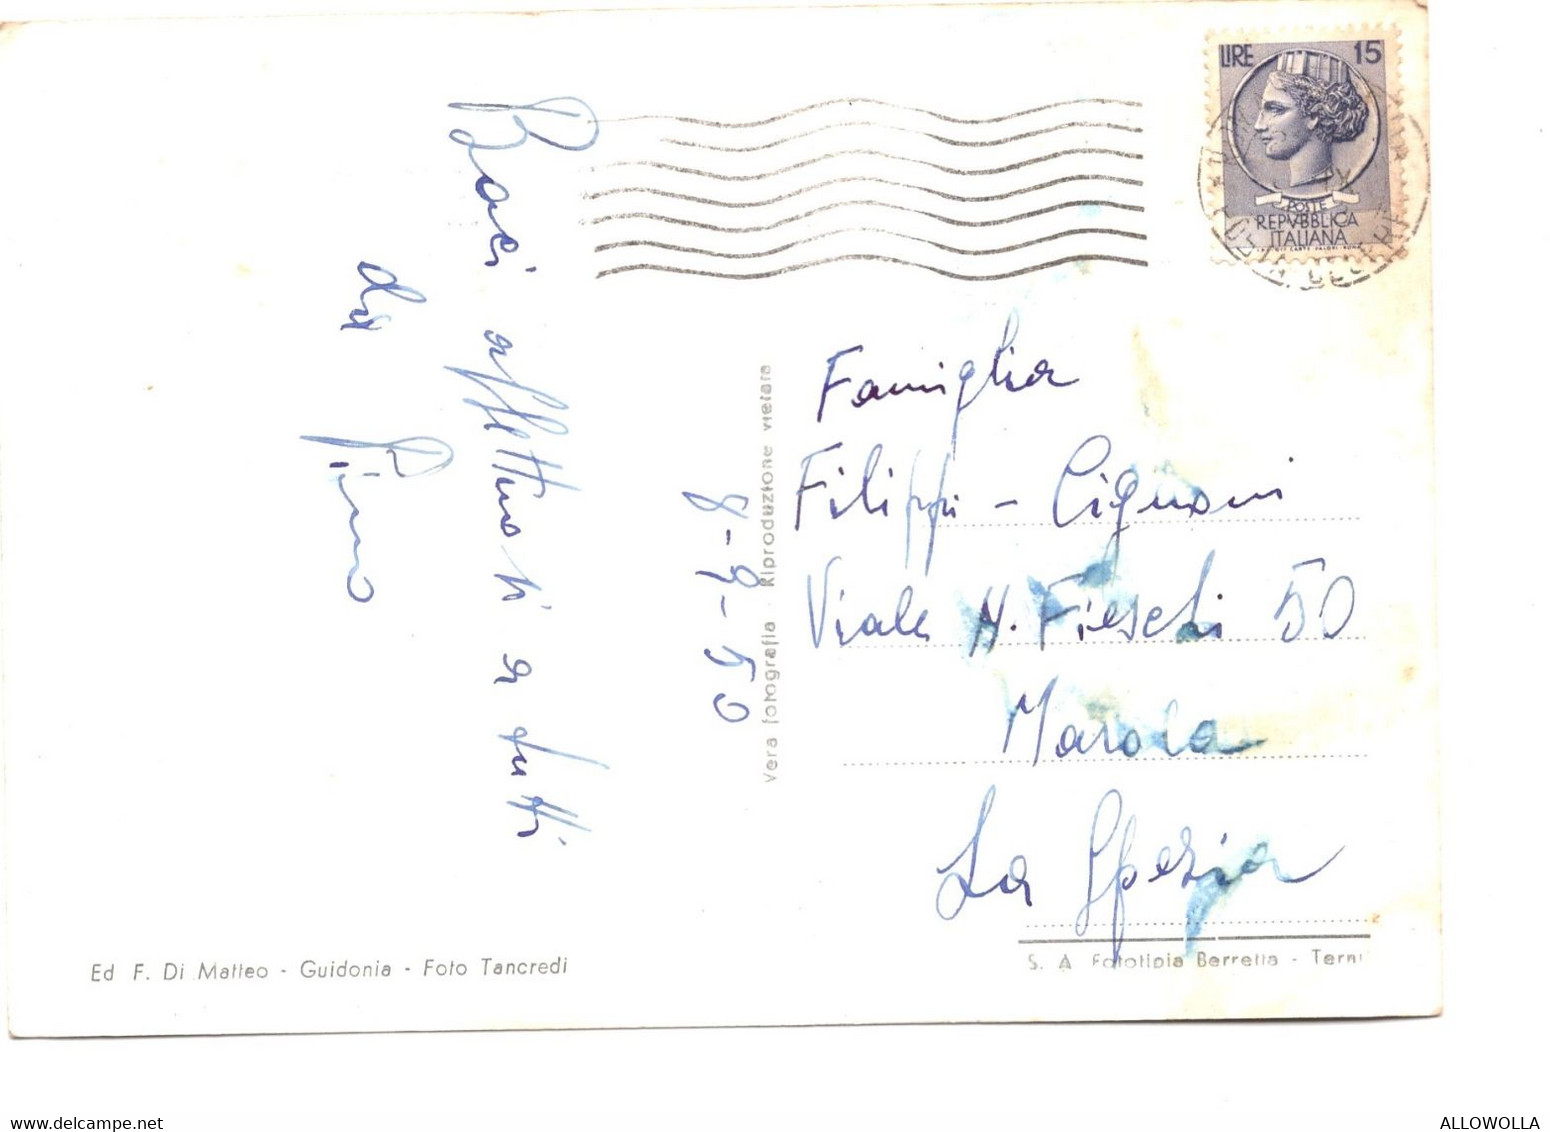 LIRE 15
POSTE
REPVBBLICA
ITALIANA
Baci affettuosi a tutti
da Pino
8-9-50
Vera fotografia - Riproduzione vietata
Famiglia
Filippi - Cignoni
Viale N. Fieschi 50
Marola
La Spezia
Ed F. Di Matteo - Guidonia - Foto Tancredi
S. A Fototipia Berretta - Terni
ALLOWOLLA